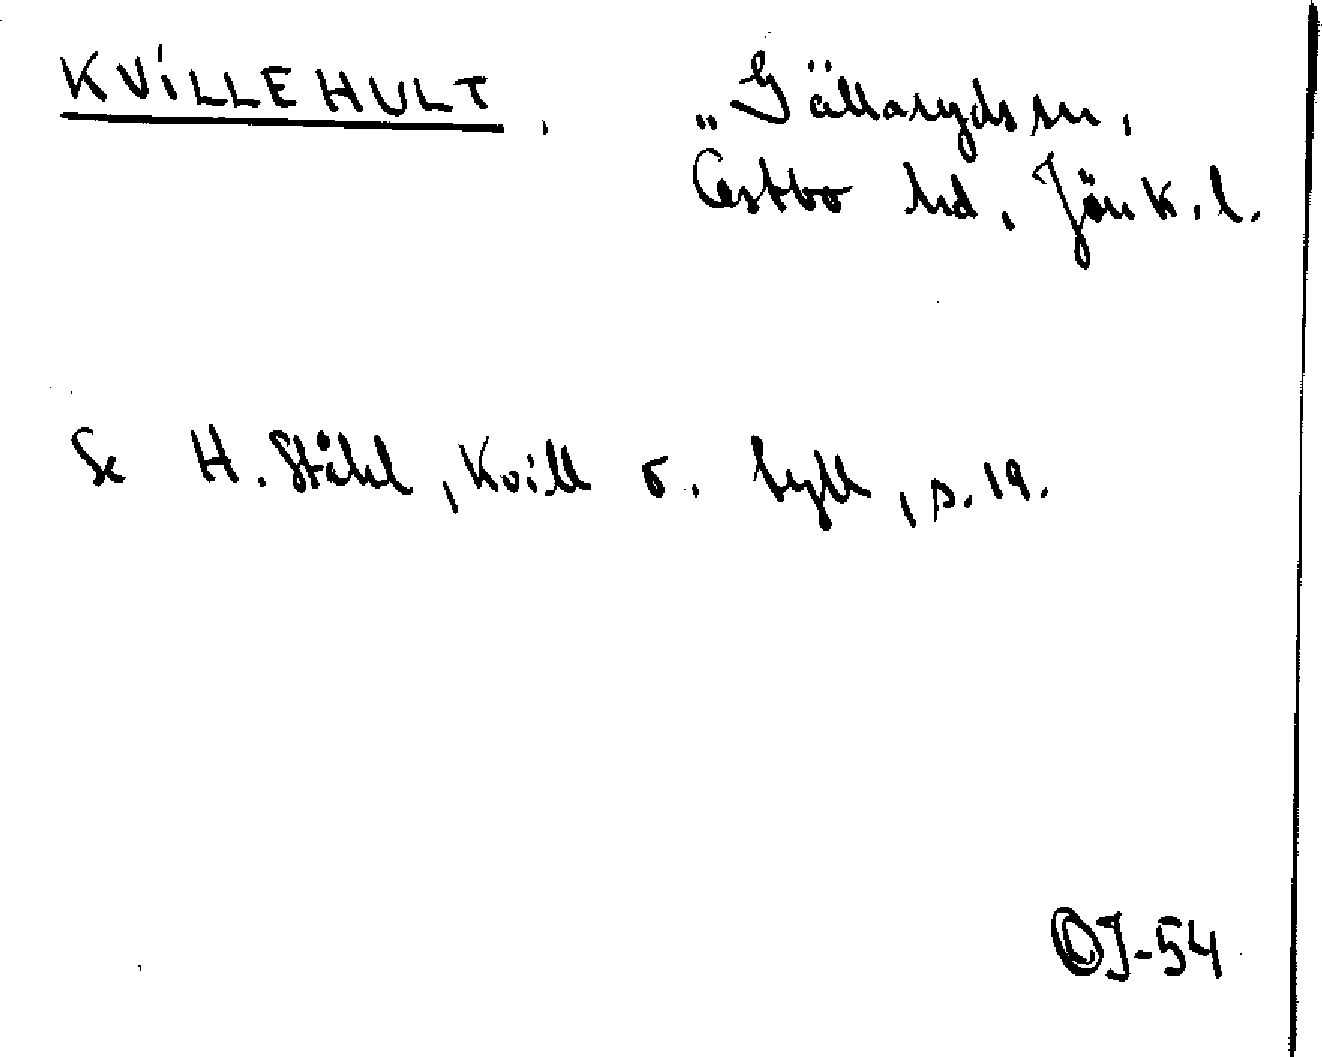 KVILLEHULT, Gällaryds sn,
Östbo hd, Jönk.l.
Se H. Ståhl, Kvill o. tyll, s. 19.
J-54